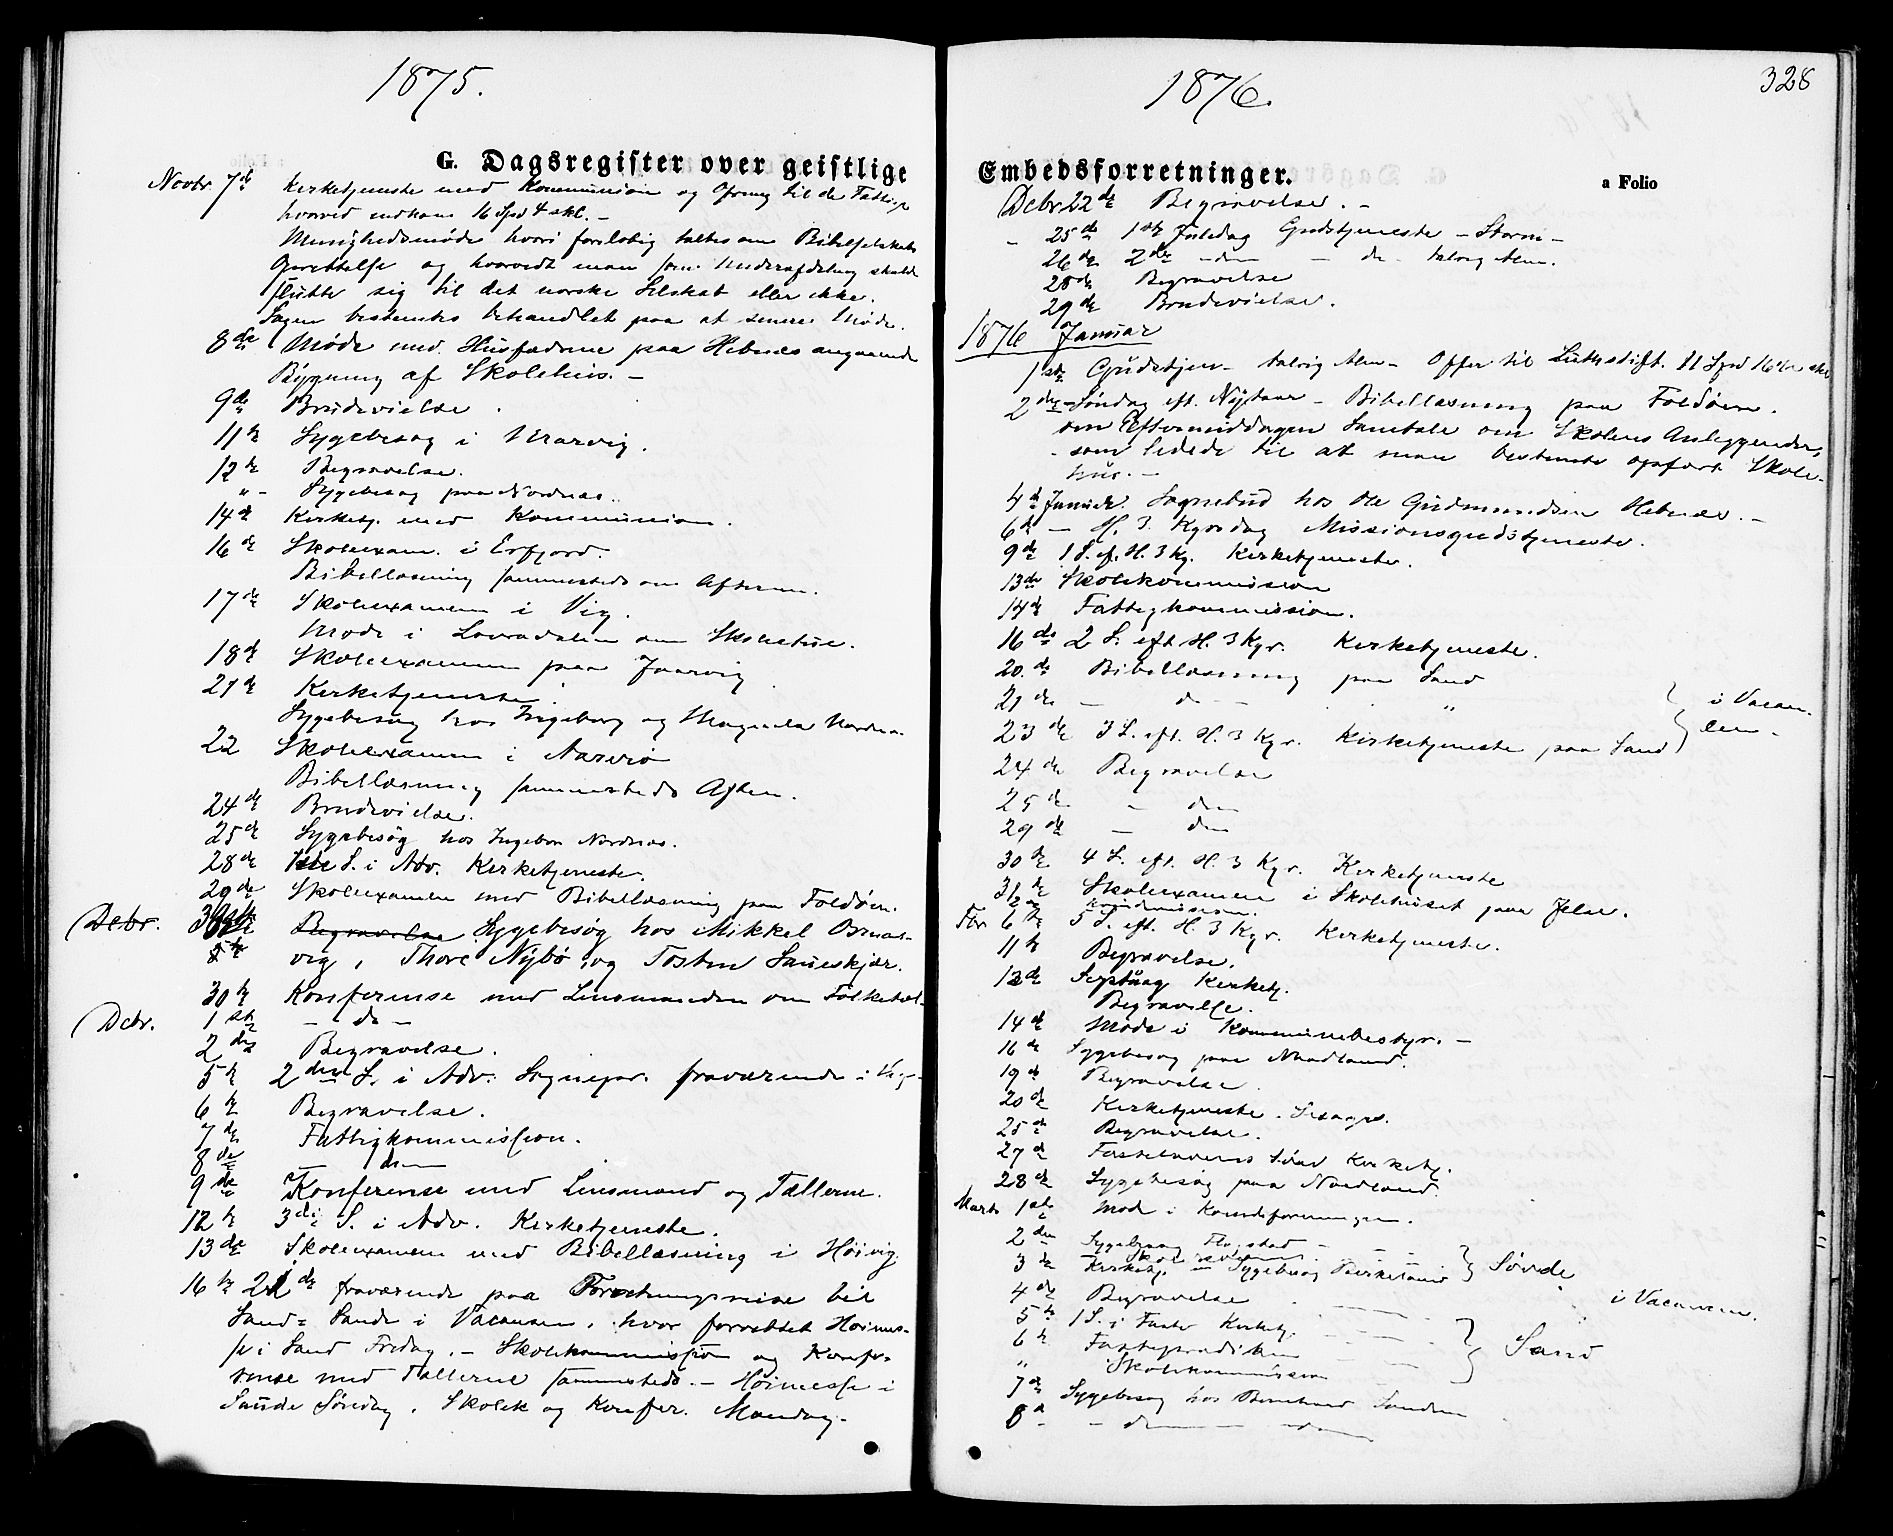 1875.
G. Dagsregister over geistlige
Novbr 7de Kirketjeneste med Kommunion og Ofring til de Fattige
hvorved indkom 16 Spd 4 skl. -
Menighedsmøde hvori foreløbig taltes om Bibelselskabs
Oprettelse og hvorvidt man som Underafdeling skulde
slutte sig til det norske Selskab eller ikke.
Sagen bestemtes behandlet paa et senere Møde.
8de Møde med Husfædrene paa Hebnes angaaende
Bygning af Skolehus. -
9de Brudevielse.
11te Sygebesøg i Marvig.
12te Begravelse.
" - Sygebesøg paa Nordnæs.
14de Kirketj. med Kommunion.
16de Skoleexam. i Erfjord.
Bibellæsning sammesteds om Aftenen.
17de Skoleexamen i Vig.
Møde i Lovradalen om Skolehus.
18de Skoleexamen paa Jaarvig
21de Kirketjeneste.
Sygebesøg hos Ingeborg og
22 Skoleexamen i
Bibellæsning sammesteds Aften.
24de Brudevielse.
25de Sygebesøg hos Ingebor Nordnæs.
28de 1ste S. i Adv. Kirketjeneste.
29de Skoleexamen med Bibellæsning paa Foldøen.
Debr. Begravelse Sygebesøg hos Mikkel
vig, Thore Nybø og Tosten Saueskjær.
30te Konferense med Lensmanden om Folketæl-
Debr. 1ste - do -
2den Begravelse.
5te 2den S. i Adv. Sognepr. fraværende i
6te Begravelse.
7de Fattigkommission.
8de - dem
9de Konferense med Lensmand og Tællerne.
12te 3die S. i Adv. Kirketjeneste.
13de Skoleexamen med Bibellæsning i Høivig.
16te 21de fraværende paa Forretningsreise til
Sand = Sande i Vacansen, hvor forrettet Høimes-
se i Sand Fredag. - Skolekommission og Konfe-
rense med Tællerne sammesteds. - Høimesse i
Saude Søndag, Skolek og Konfer. Mandag. -
1876.
328
Embedsforretninger.
a Folio
Debr 22de Begravelse. -
- 25de 1ste Juledag Gudstjeneste - Storm -
26de 2den - dem - do - talrig Alm.
28de Begravelse
29de Brudevielse.
1876 Januar
1ste Gudstjen - talrig Alm - Offer til Luthstift. 11 Spd 16 skl
2den Søndag eft. Nytaar - Bibellæsning paa Foldøen.
om Eftermiddagen Samtale om Skolens Anliggender,
som ledede til at man bestemte opført Skole-
hus. -
4de Januar. Sognebud hos Ole Gudmundsen Hebnes. -
6te - H. 3 Kgrsdag Missionsgudstjeneste.
9de 1 S. ef. H. 3 Kg. Kirketjeneste.
13de Skolekommission
14de Fattigkommission.
16de 2 S. eft H. 3 Kgr. Kirketjeneste.
20de Bibellæsning paa Sand
21de - do - - "
i Vacan-
sen -
23de 3 S. eft. H. 3 Kgr. Kirketjeneste paa Sand
24de Begravelse
25de - dem
29de - dem
30te 4 S. eft. H. 3 Kgr. Kirketjeneste
31te Skoleexamen i Skolehuset paa Jelse.
Fbr 6te 5 S. eft. H. 3 Kgr. Kirketjeneste.
11te Begravelse.
13de Kirketj.
Begravelse.
14de Møde i Kommunebestyr. -
16de Sygebesøg paa
19de Begravelse.
20de Kirketjeneste. Sexages.
25de Begravelse.
27de Fastelavens Sønd Kirketj.
28de Sygebesøg paa
Marts 1ste Møde i
2den Sygebesøg
3de Kirketj. Sygebesøg
Søvde
4de Begravelse
i Vacansen.
5te 1 S. i Faste Kirketj.
6te Fasteprædiken
Sand
" Skolekommission
7de Sygebesøg hos
8de - dem - dem